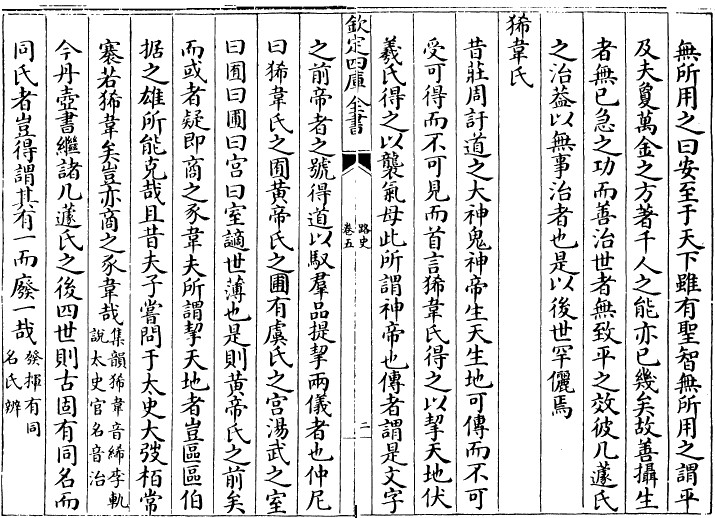 無所用之曰安至于天下雖有聖智無所用之謂平
及夫敻萬金之方著千人之能亦已幾矣故善攝生
者無已急之功而善治世者無致平之效彼几蘧氏
之治葢以無事治者也是以後世罕儷焉
狶韋氏
昔莊周訏道之大神鬼神帝生天生地可傳而不可
受可得而不可見而首言狶韋氏得之以挈天地伏
羲氏得之以襲氣母此所謂神帝也傳者謂是文字
欽定四庫全書
路史
卷五
二
之前帝者之號得道以馭羣品提挈兩儀者也仲尼
曰狶韋氏之囿黄帝氏之圃有虞氏之宫湯武之室
曰囿曰圃曰宫曰室讁世薄也是則黄帝氏之前矣
而或者疑即商之豕韋夫所謂挈天地者豈區區伯
据之雄所能克哉且昔夫子嘗問于太史大弢栢常
褰若狶韋矣豈亦商之豕韋哉
集韻狶韋音綈李軌
說太史官名音治
今丹壺書繼諸几蘧氏之後四世則古固有同名而
同氏者豈得謂其有一而廢一哉
發揮有同
名氏辨